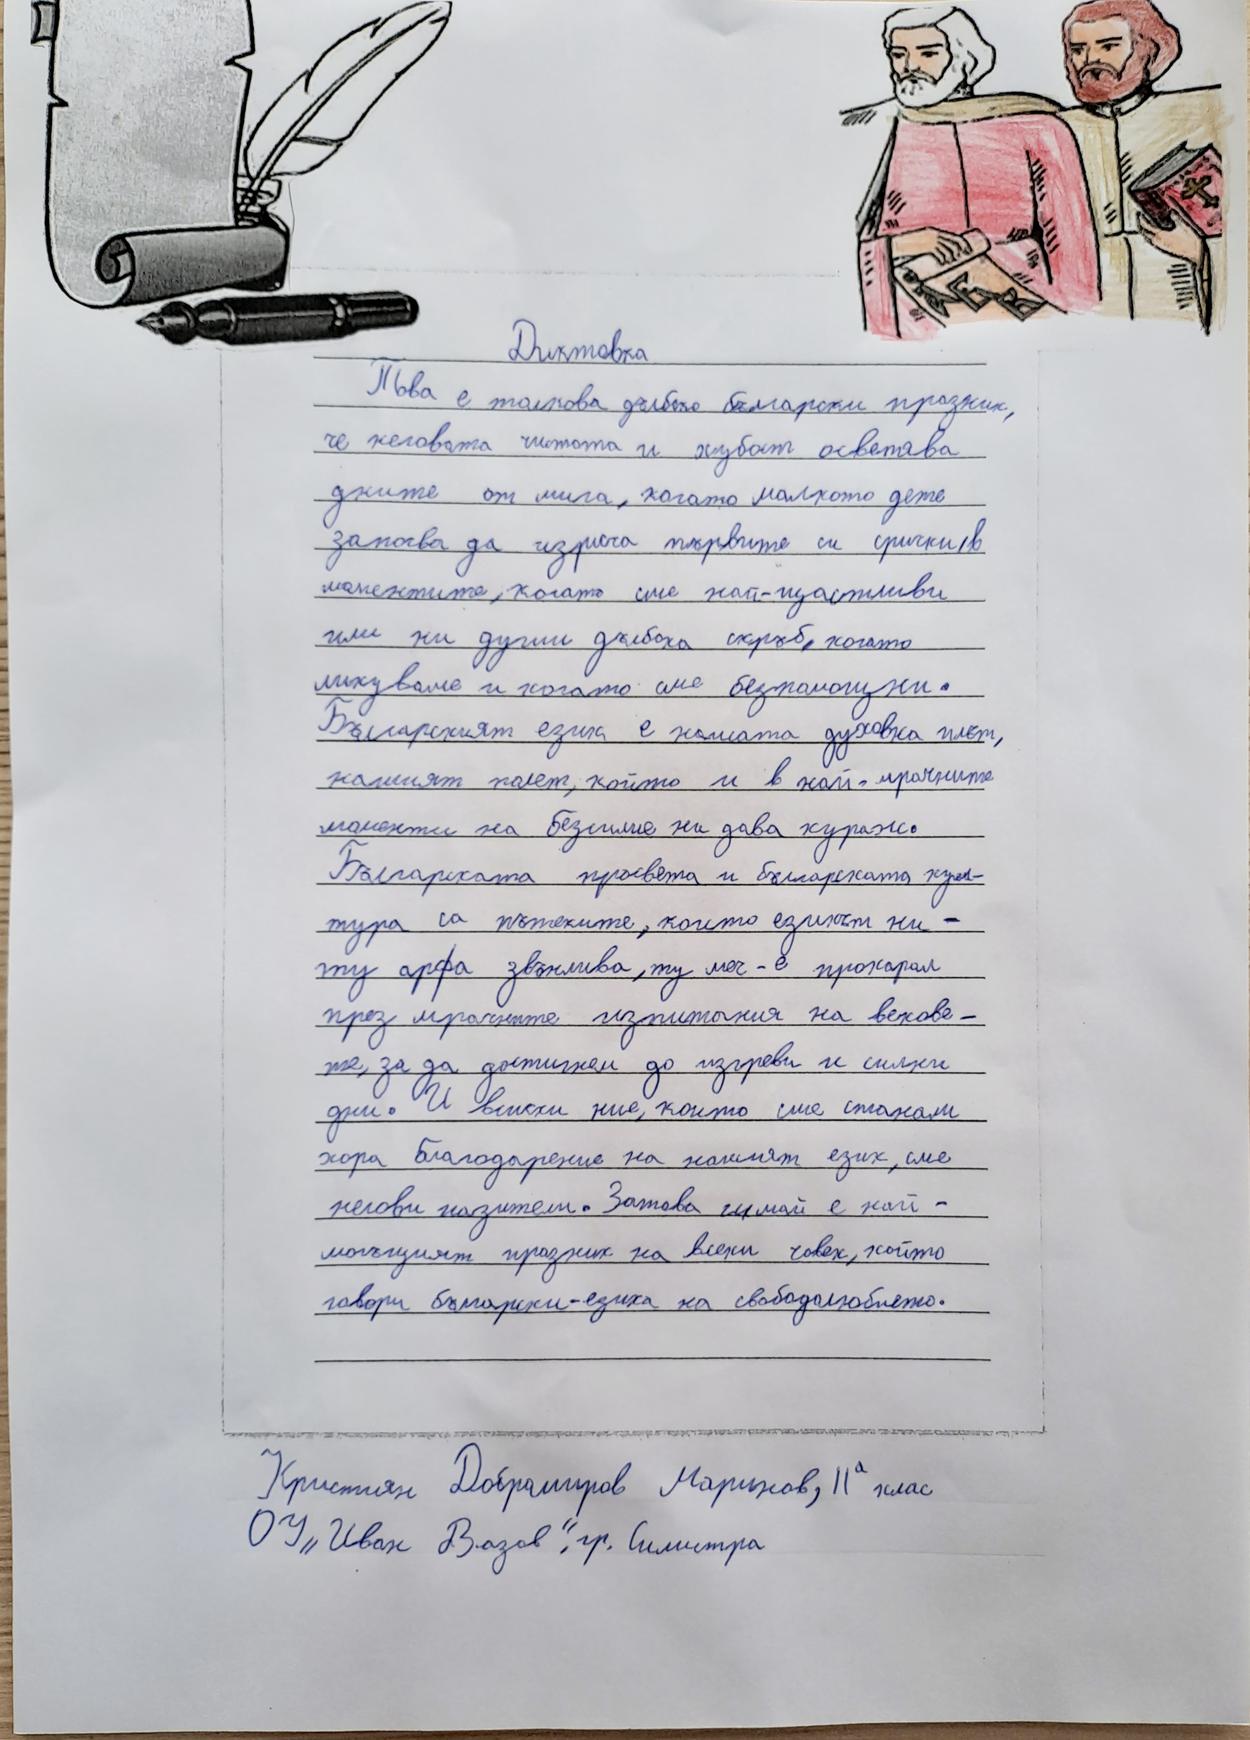 Диктовка
Това е толкова дълбоко български празник,
че неговата чистота и хубост осветява
дните от мига, когато малкото дете
започва да изрича първите си срички, в
моментите, когато сме най-щастливи
или ни души дълбока скръб, когато
ликуваме и когато сме безпомощни.
Българският език е нашата духовна плът,
нашият полет, който и в най-мрачните
моменти на безсилие ни дава кураж.
Българската просвета и българската кул-
тура са пътеките, които езикът ни -
ту арфа звънлива, ту меч - е прокарал
през мрачните изпитания на векове-
те, за да достигнем до изгреви и силни
дни. И всички ние, които сме станали
хора благодарение на нашият език, сме
негови пазители. Затова и май е най -
могъщият празник на всеки човек, който
говори български-езика на свободолюбието.
Кристиян Добромиров Маринов, IIа клас
ОУ „Иван Вазов“, гр. Силистра